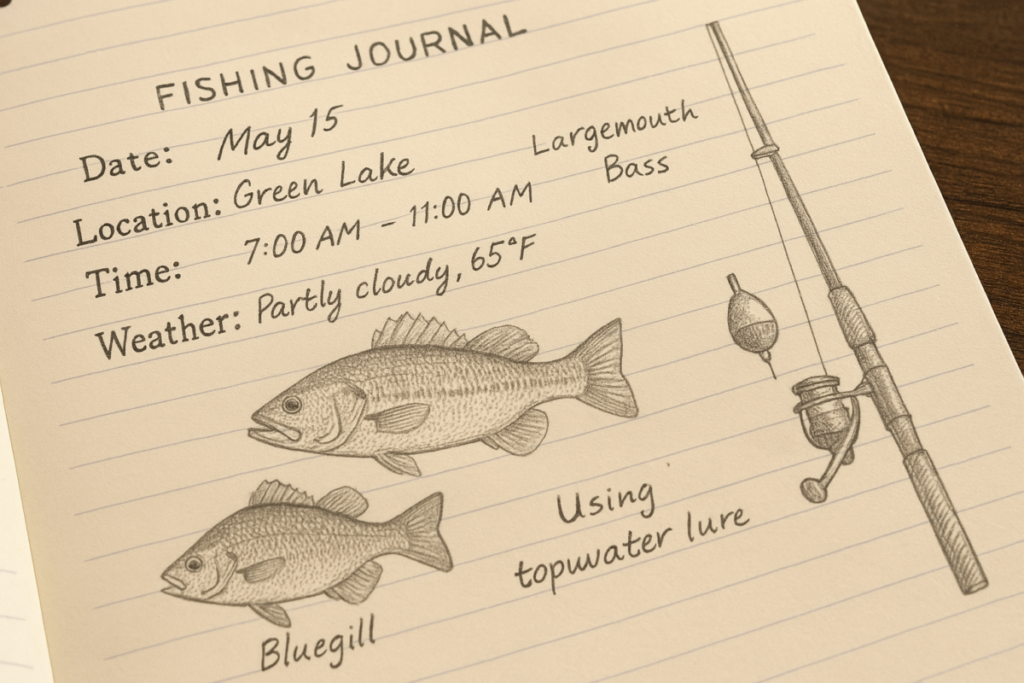 FISHING JOURNAL
Date: May 15
Location: Green Lake
Time: 7:00 AM – 11:00 AM
Weather: Partly cloudy, 65°F
Largemouth
Bass
Using
topwater lure
Bluegill